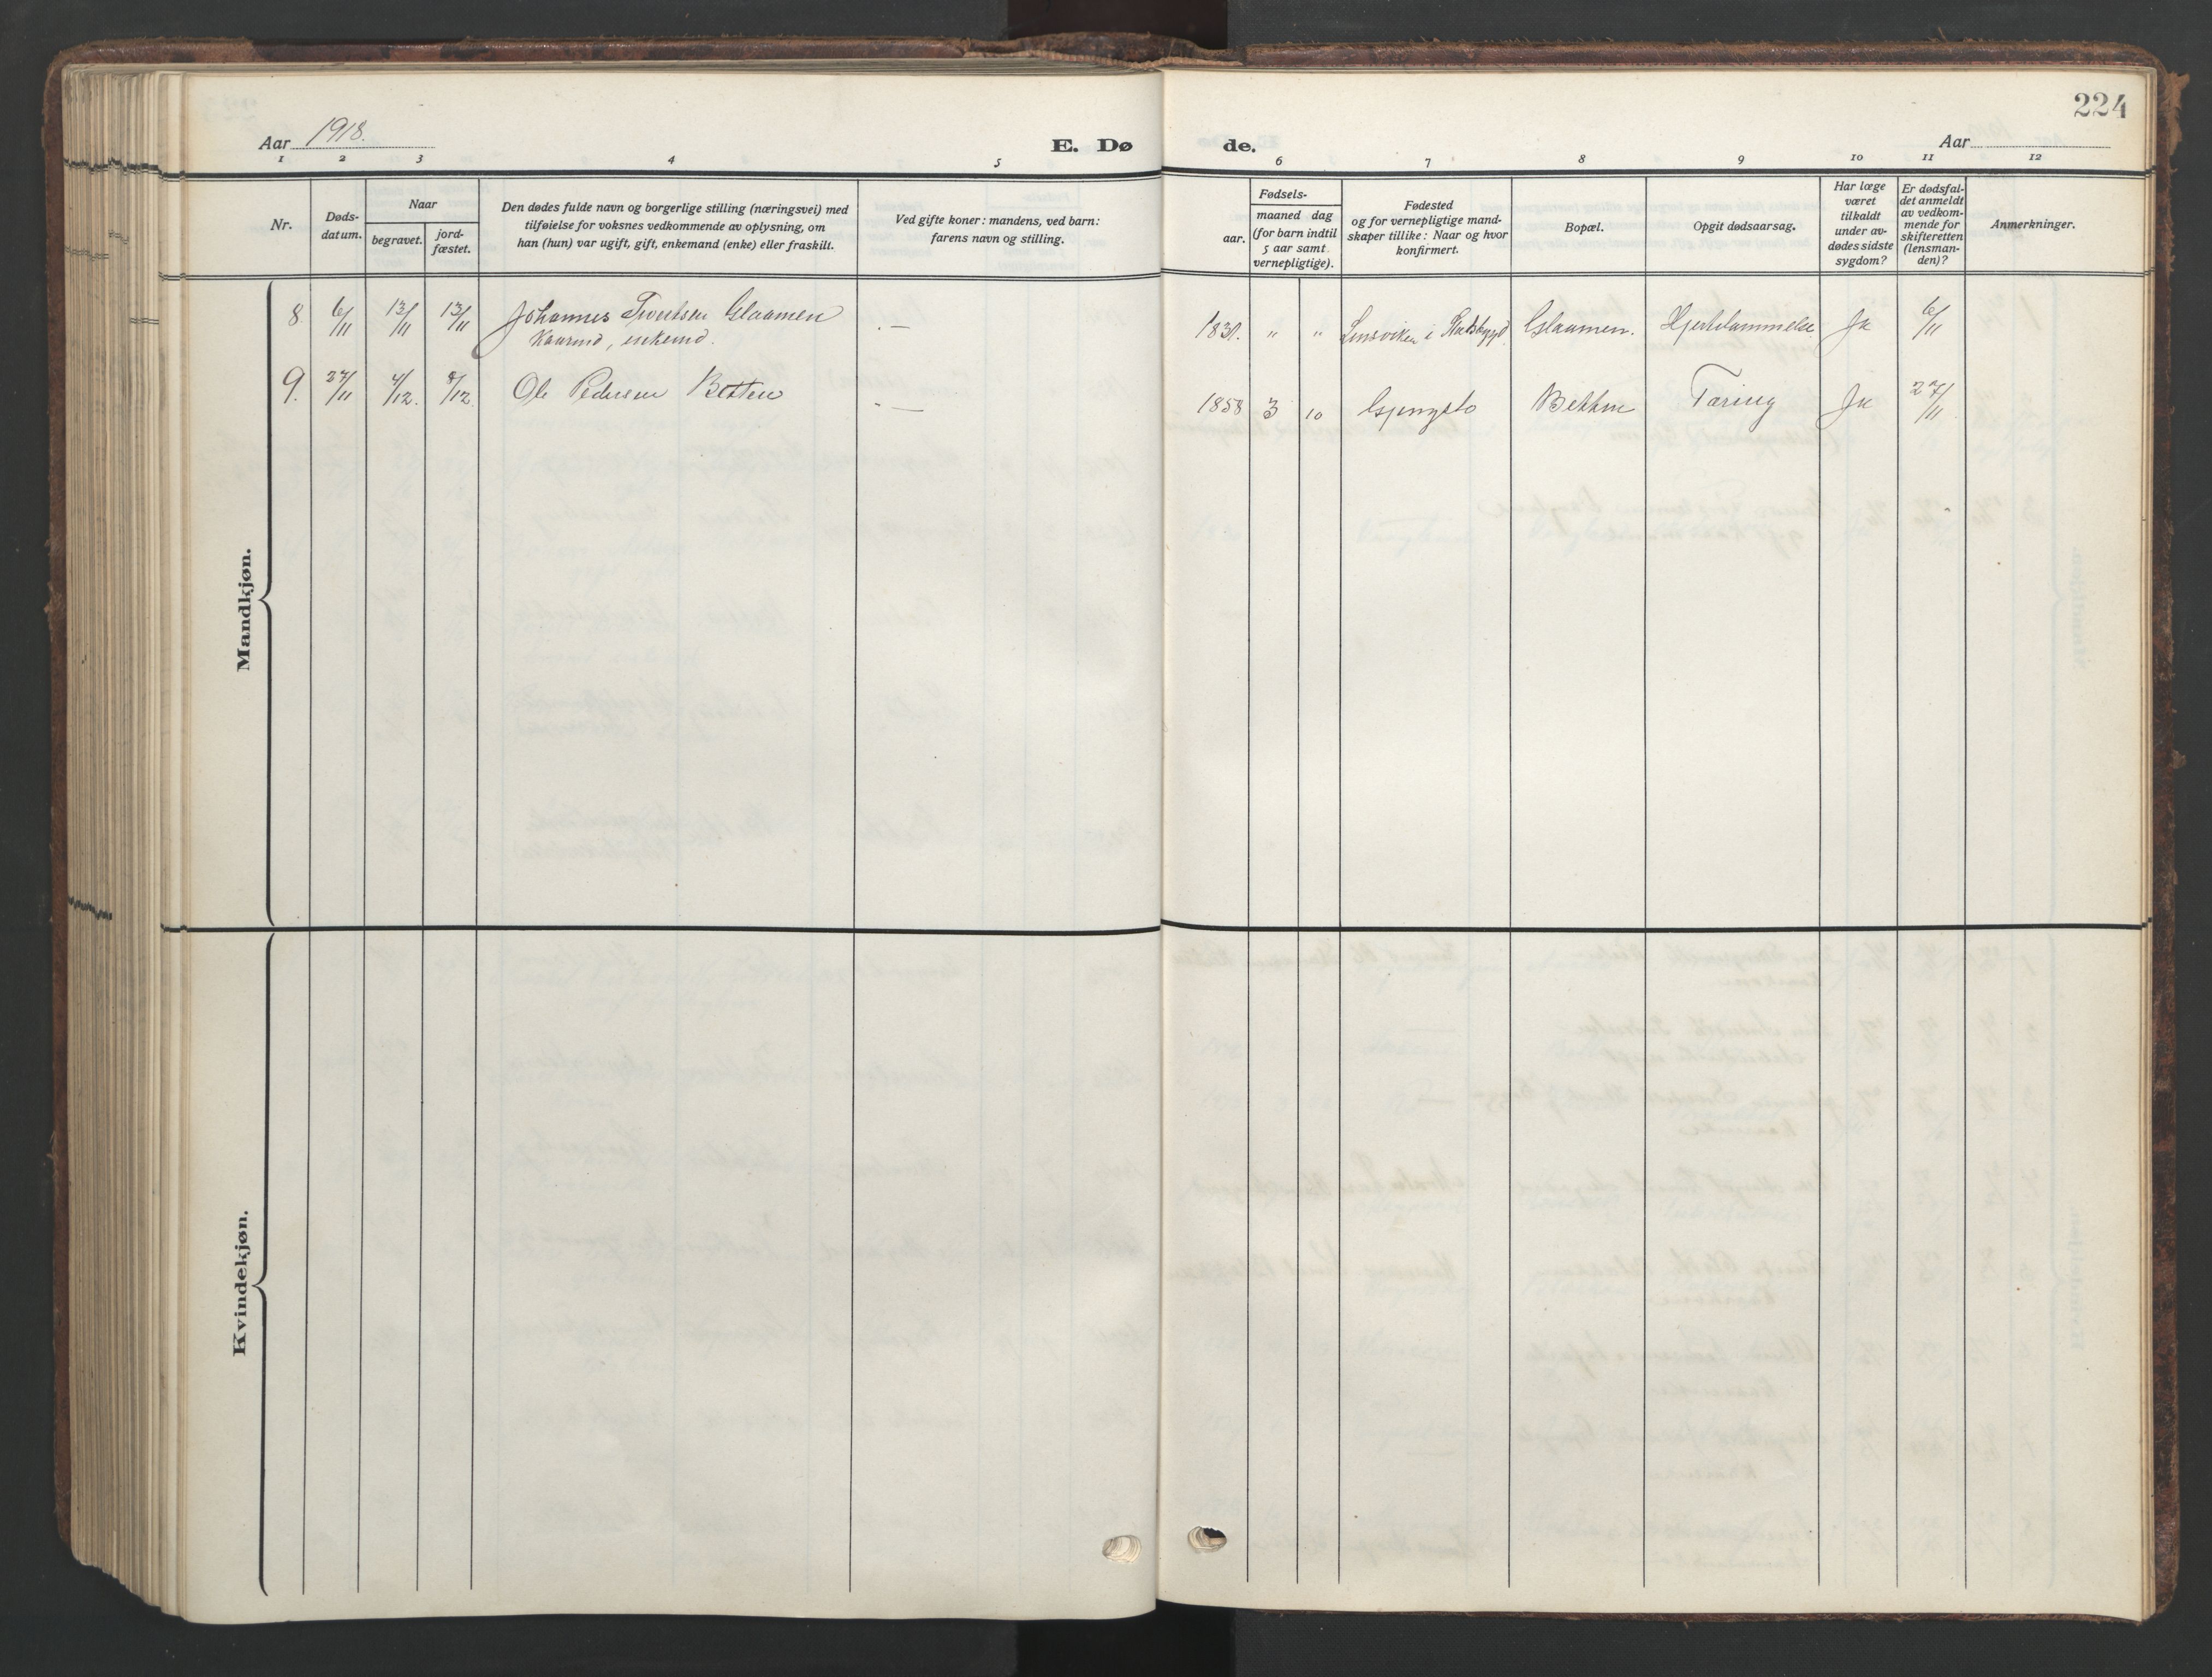 224
Aar 1918.
E. Dø de.
Aar
1 2 3 4 5 6 7 8 9 10 11 12
Nr.
Døds-
datum.
Naar
begravet.
jord-
fæstet.
Den dødes fulde navn og borgerlige stilling (næringsvei) med
tilføielse for voksnes vedkommende av oplysning, om
han (hun) var ugift, gift, enkemand (enke) eller fraskilt.
Ved gifte koner: mandens, ved barn:
farens navn og stilling.
Fødsels-
aar.
maaned dag
(for barn indtil
5 aar samt
vernepligtige).
Fødested
og for vernepligtige mand-
skaper tillike: Naar og hvor
konfirmert.
Bopæl.
Opgit dødsaarsag.
Har læge
været
tilkaldt
under av-
dødes sidste
sygdom?
Er dødsfal-
det anmeldt
av vedkom-
mende for
skifteretten
(lensman-
den)?
Anmerkninger.
Mandkjøn.
8. 6/11 13/11 13/11 Johannes Sivertsen Glaamen .— 1831. " " Lensviken i Stadsbygd Glaamen. Hjertelammelse. Ja 6/11
Kaarmd, enkemd.
9. 27/11 4/12. 8/12. Ole Pedersen Betten .— 1858 3 10 Gjengsto Betten Tæring Ja 27/11
Kvindekjøn.